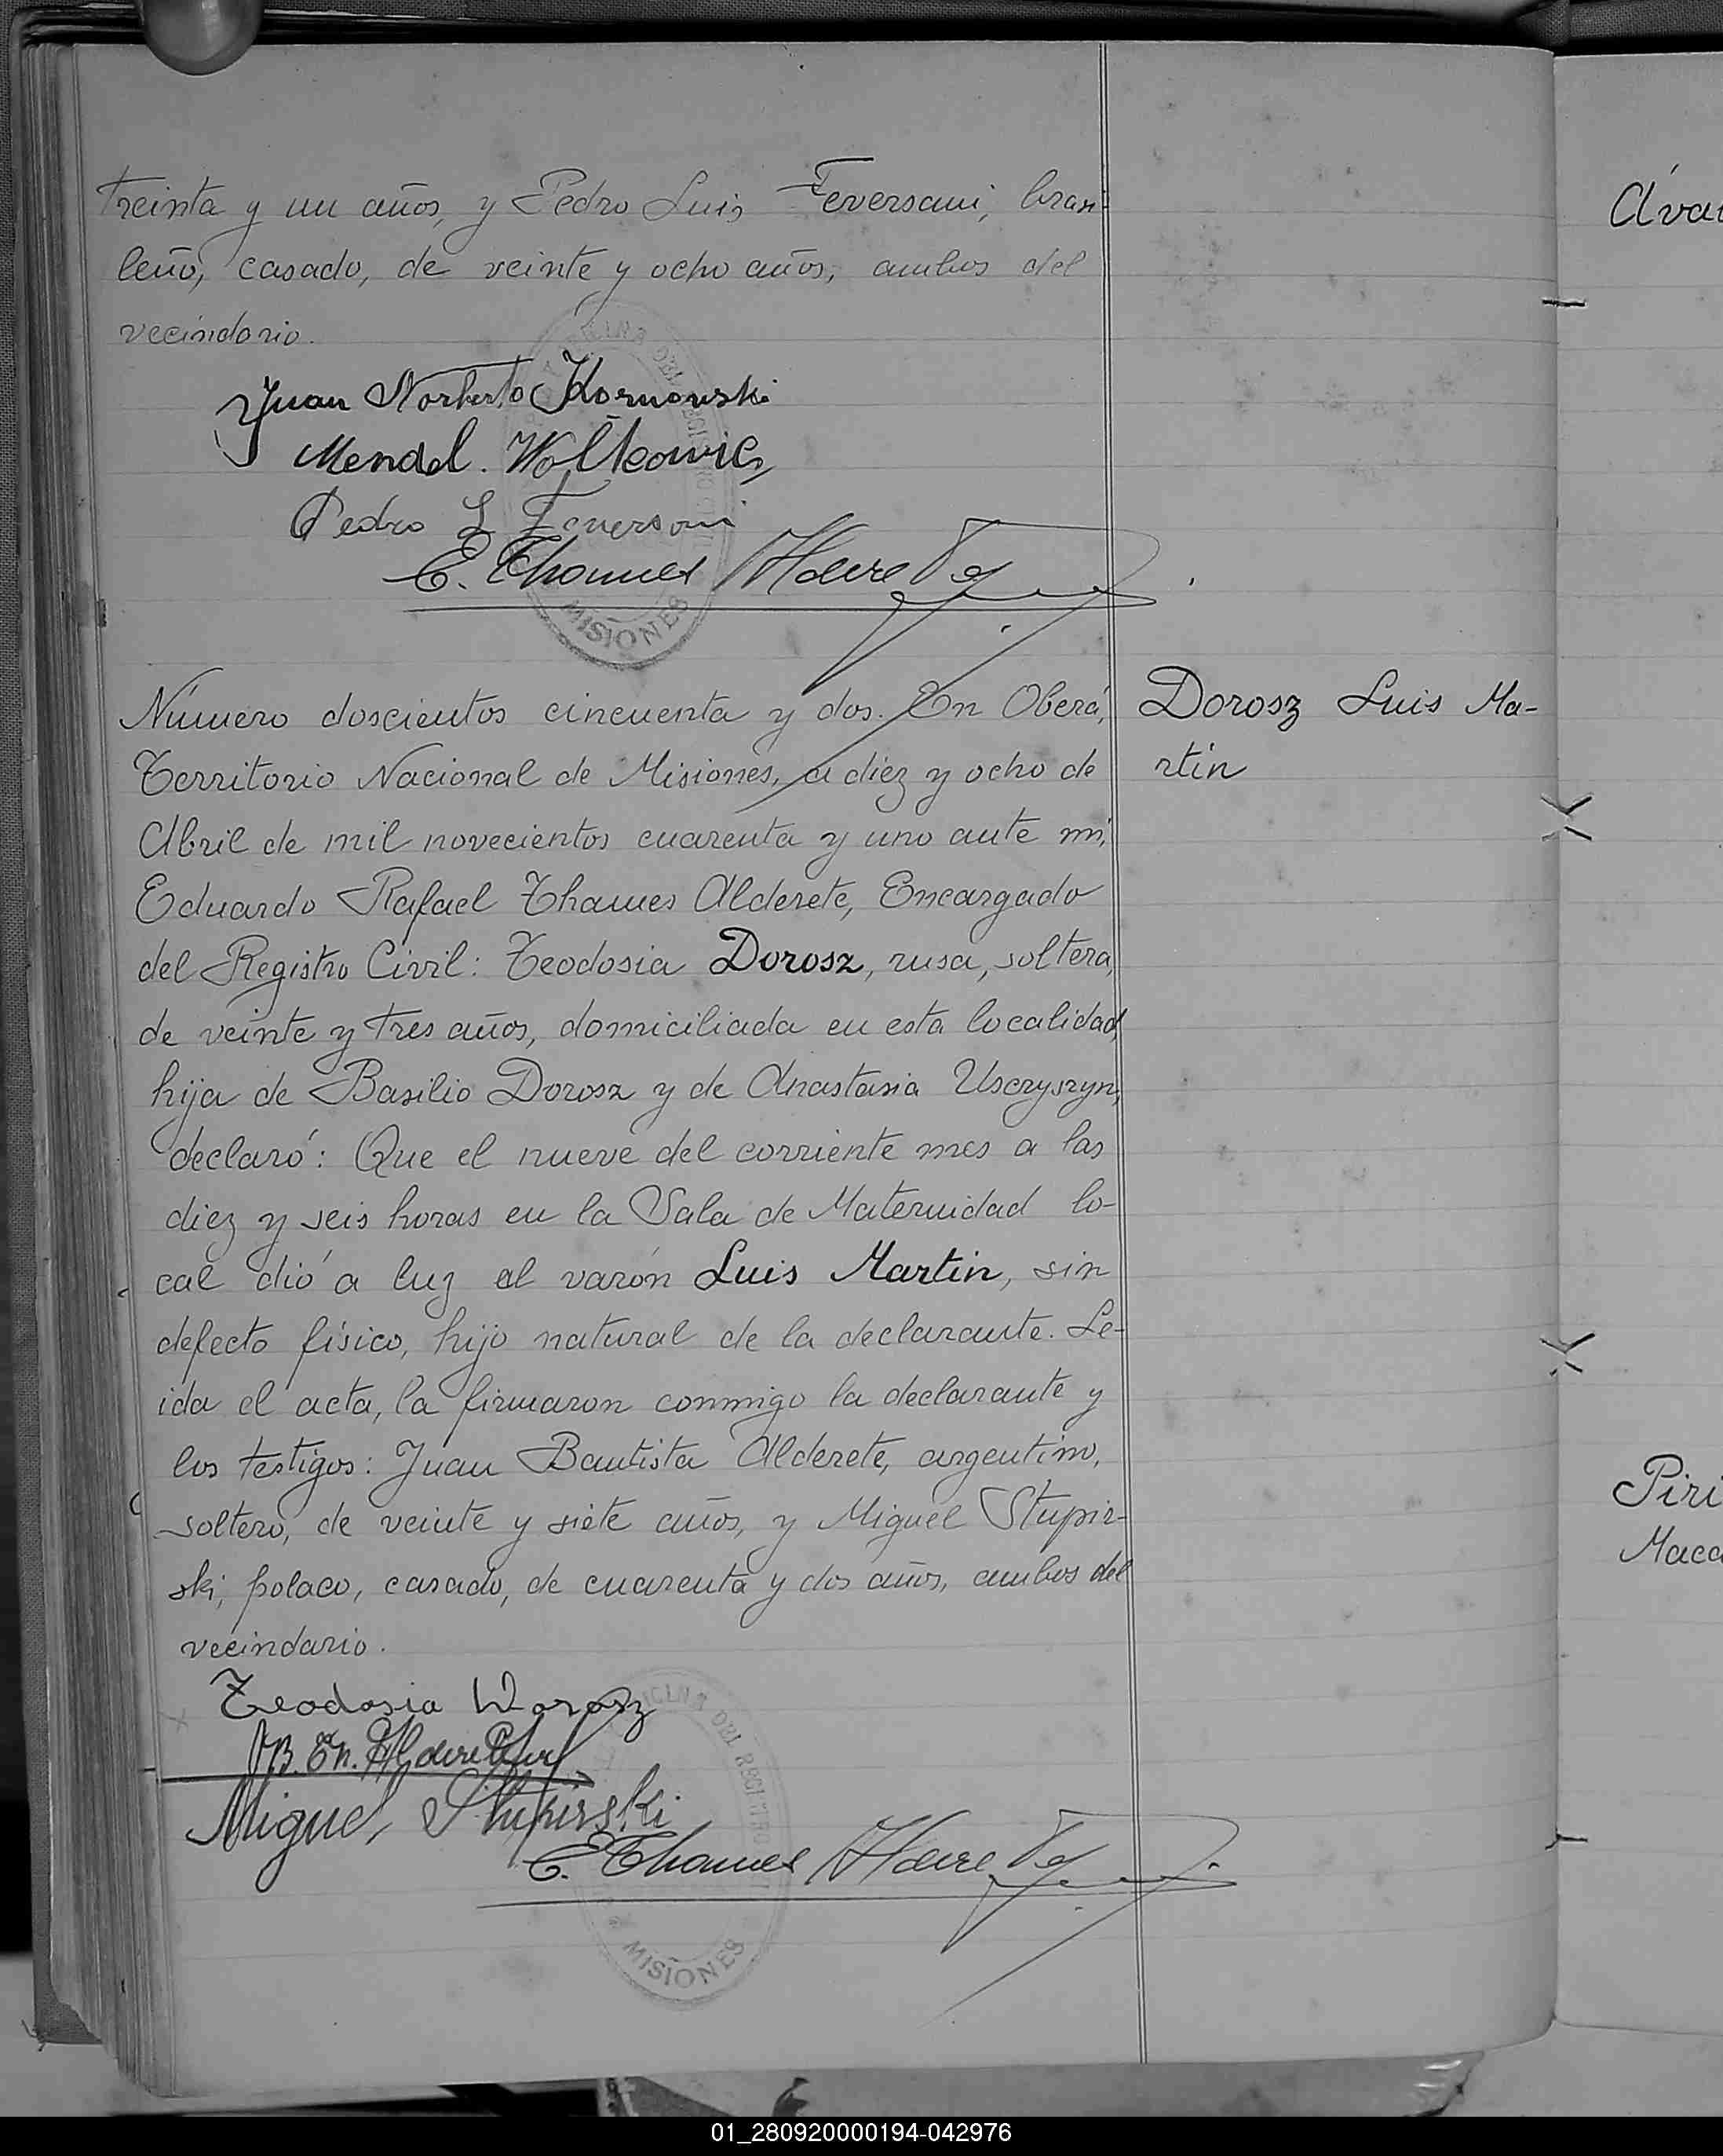 treinta y un años, y Pedro Luis Feversani, brasi-
leño, casado, de veinte y ocho años, ambos del
vecindario.
Juan Norberto Kornowski
Mendel. Wolkowicz
Pedro L Feversani
E. Thames Alderete
MISIONES
Número doscientos cincuenta y dos. En Oberá,
Territorio Nacional de Misiones, a diez y ocho de
Abril de mil novecientos cuarenta y uno ante mi,
Eduardo Rafael Thames Alderete, Encargado
del Registro Civil: Teodosia Dorosz, rusa, soltera,
de veinte y tres años, domiciliada en esta localidad,
hija de Basilio Dorosz y de Anastasia Usczyszyn,
declaró: Que el nueve del corriente mes a las
diez y seis horas en la Sala de Maternidad lo-
cal dió a luz al varón Luis Martin, sin
defecto físico, hijo natural de la declarante. Le-
ida el acta, la firmaron conmigo la declarante y
los testigos: Juan Bautista Alderete, argentino,
soltero, de veinte y siete años, y Miguel Stupir-
ski, polaco, casado, de cuarenta y dos años, ambos del
vecindario.
Teodosia Dorosz
Miguel Stupirski
E. Thames Alderete
MISIONES
Dorosz Luis Ma-
rtin
Alva
Piri
Maca
01_280920000194-042976